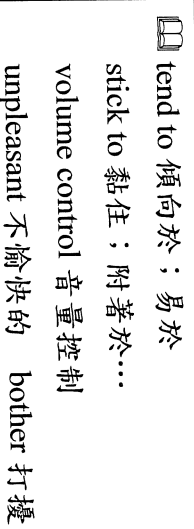 tend to 傾向於；易於
stick to 黏住；附著於…
volume control 音量控制
unpleasant 不愉快的 bother 打擾